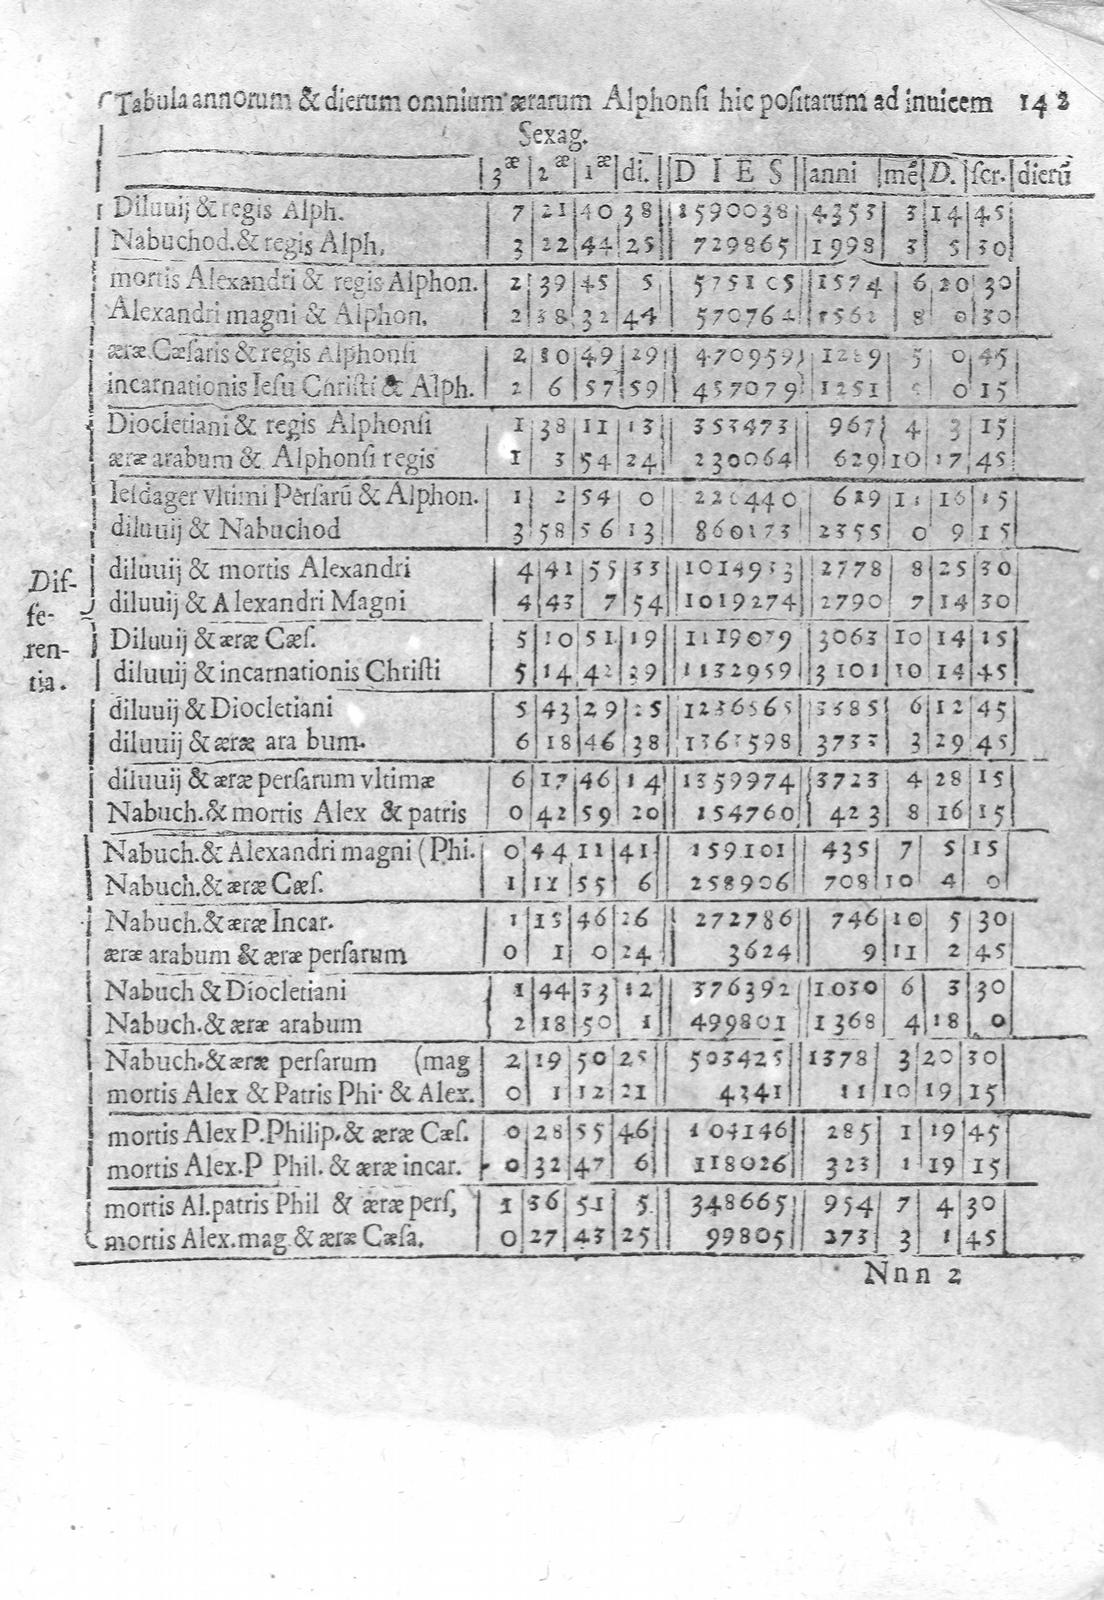 Tabula annorum & dierum omnium ærarum Alphonsi hic positarum ad inuicem 142
Sexag.
3æ 2æ 1æ di. DIES anni mẽ D. scr. dierũ
Diluuij & regis Alph. 7 21 40 38 1590038 4353 3 14 45
Nabuchod. & regis Alph. 3 22 44 25 729865 1998 3 5 30
mortis Alexandri & regis Alphon. 2 39 45 5 575105 1574 6 20 30
Alexandri magni & Alphon. 2 38 32 44 570764 1562 8 0 30
æræ Cæsaris & regis Alphonsi 2 10 49 29 470959 1289 5 0 45
incarnationis Iesu Christi & Alph. 2 6 57 59 457079 1251 0 15
Diocletiani & regis Alphonsi 1 38 11 13 353473 967 4 3 15
æræ arabum & Alphonsi regis 1 3 54 24 230064 629 10 17 45
Iesdager vltimi Persarũ & Alphon. 1 2 54 0 226440 619 11 16 15
diluuij & Nabuchod 3 58 56 13 860173 2355 0 9 15
Differentia.
diluuij & mortis Alexandri 4 41 55 33 1014933 2778 8 25 30
diluuij & Alexandri Magni 4 43 7 54 1019274 2790 7 14 30
Diluuij & æræ Cæs. 5 10 51 19 1119079 3063 10 14 15
diluuij & incarnationis Christi 5 14 42 39 1132959 3101 10 14 45
diluuij & Diocletiani 5 43 29 25 1236565 3385 6 12 45
diluuij & æræ ara bum. 6 18 46 38 1363598 3733 3 29 45
diluuij & æræ persarum vltimæ 6 17 46 14 1359974 3723 4 28 15
Nabuch. & mortis Alex & patris 0 42 59 20 154760 423 8 16 15
Nabuch. & Alexandri magni (Phi. 0 44 11 41 159101 435 7 5 15
Nabuch. & æræ Cæs. 1 11 55 6 258906 708 10 4 0
Nabuch. & æræ Incar. 1 15 46 26 272786 746 10 5 30
æræ arabum & æræ persarum 0 1 0 24 3624 9 11 2 45
Nabuch & Diocletiani 1 44 33 12 376392 1030 6 3 30
Nabuch. & æræ arabum 2 18 50 1 499801 1368 4 18 0
Nabuch. & æræ persarum (mag 2 19 50 25 503425 1378 3 20 30
mortis Alex & Patris Phi. & Alex. 0 1 12 21 4341 11 10 19 15
mortis Alex P. Philip. & æræ Cæs. 0 28 55 46 104146 285 1 19 45
mortis Alex. P Phil. & æræ incar. 0 32 47 6 118026 323 1 19 15
mortis Al. patris Phil & æræ pers, 1 36 51 5 348665 954 7 4 30
mortis Alex. mag & æræ Cæsa. 0 27 43 25 99805 273 3 1 45
Nnn 2